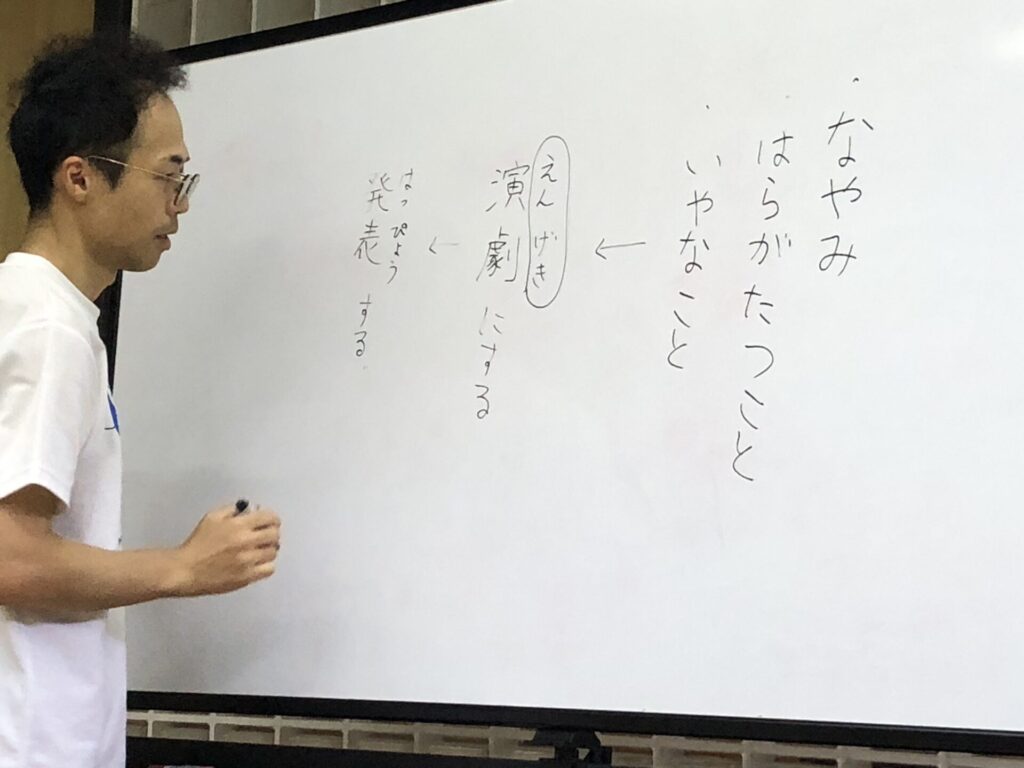 ・なやみ
・はらがたつこと
・いやなこと
←
えんげき
演劇にする
←
はっぴょう
発表する